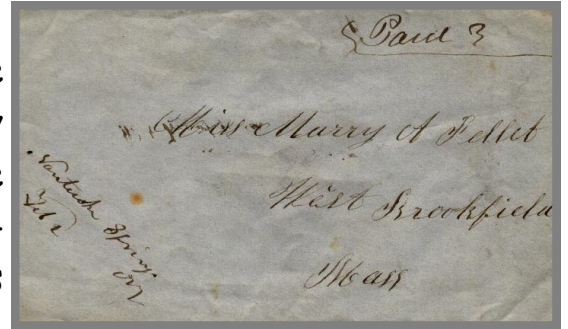 Paid 3
Miss Marry A Pellet
West Brookfield
Mass
Springs
Feb 2